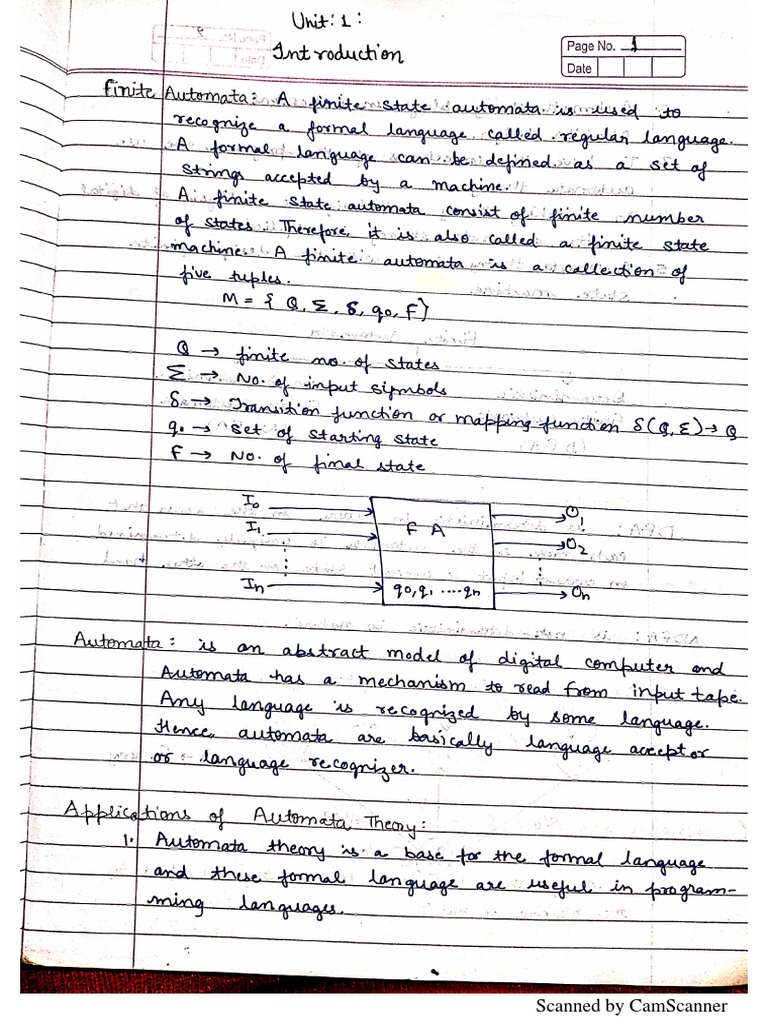 Unit: 1:
Introduction
Page No. 1
Date
Finite Automata: A finite state automata is used to
recognize a formal language called regular language.
A formal language can be defined as a set of
strings accepted by a machine.
A finite state automata consist of finite number
of states. Therefore, it is also called a finite state
machine. A finite automata is a collection of
five tuples.
M = { Q, Σ, δ, q0, F}
Q → finite no. of states
Σ → No. of input symbols
δ → Transition function or mapping function δ(Q, Σ) → Q
q0 → Set of starting state
F → No. of final state
I0 → FA → O1
I1 → → O2
In → q0, q1 ....qn → On
Automata: is an abstract model of digital computer and
Automata has a mechanism to read from input tape.
Any language is recognized by some language.
Hence, automata are basically language acceptor
or language recognizer.
Applications of Automata Theory:
1. Automata theory is a base for the formal language
and these formal language are useful in program-
ming languages.
Scanned by CamScanner